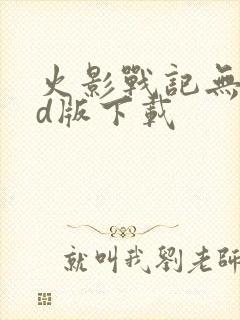 火影戰記無
d版下載
就叫我劉老師